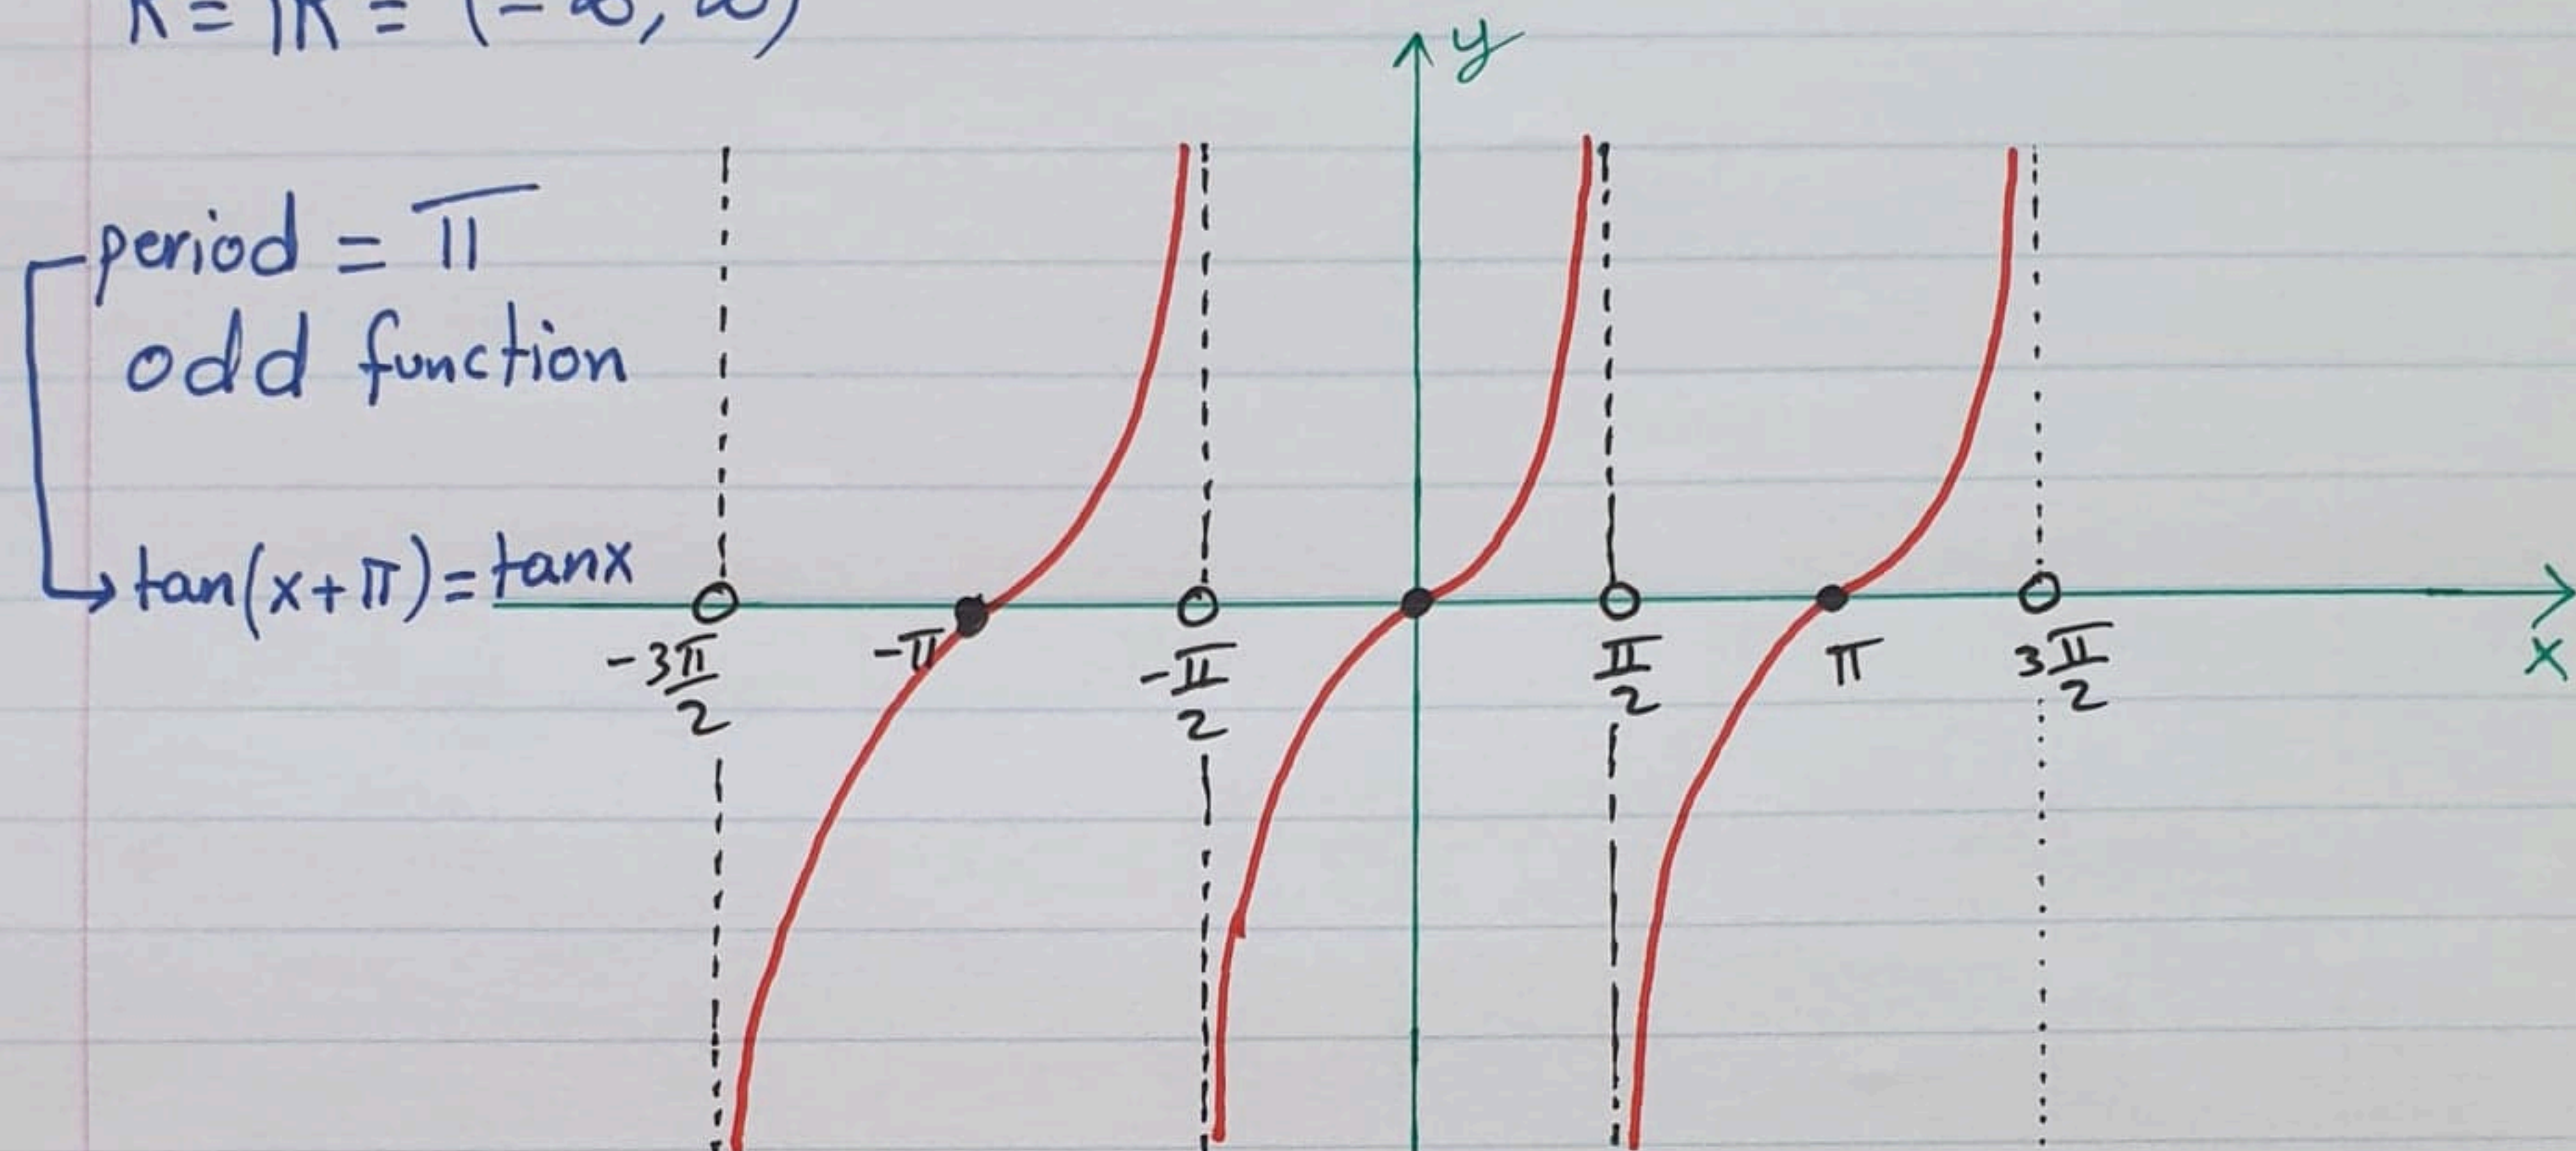 R = ℝ = (-∞, ∞)
y
period = π
odd function
tan(x+π)=tanx
-3π/2
-π
-π/2
π/2
π
3π/2
x